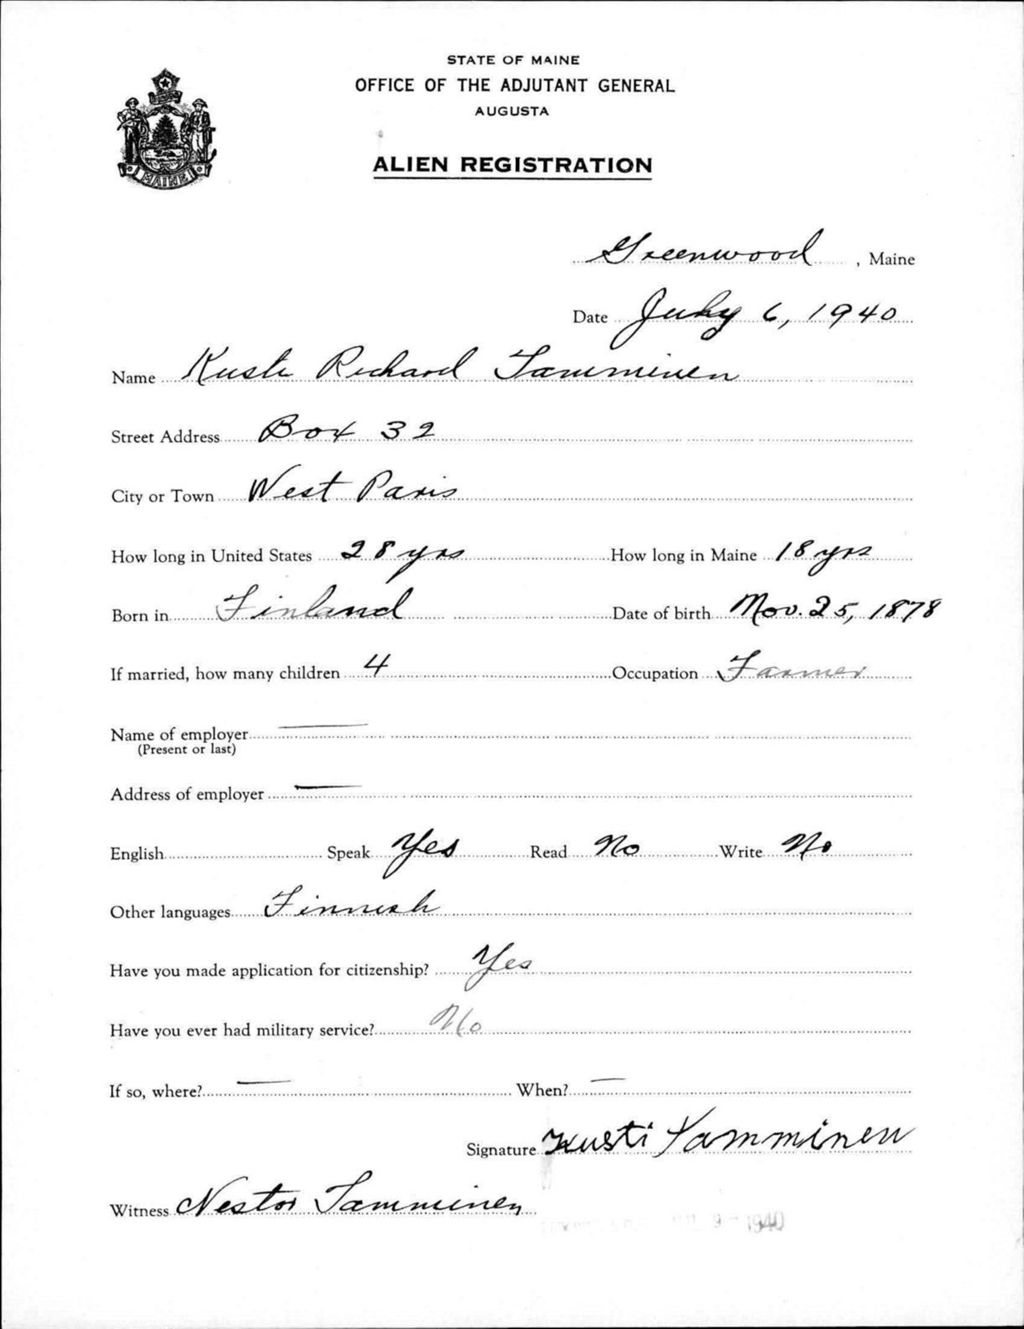 STATE OF MAINE
OFFICE OF THE ADJUTANT GENERAL
AUGUSTA
ALIEN REGISTRATION
MAINE
Greenwood, Maine
Date July 6, 1940
Name Kusti Richard Tamminen
Street Address Box 32
City or Town West Paris
How long in United States 28 yrs How long in Maine 18 yrs
Born in Finland Date of birth Nov. 25, 1878
If married, how many children 4 Occupation Farmer
Name of employer —
(Present or last)
Address of employer —
English Speak Yes Read No Write No
Other languages Finnish
Have you made application for citizenship? Yes
Have you ever had military service? No
If so, where? — When? —
Signature Kusti Tamminen
Witness Nestor Tamminen
1940